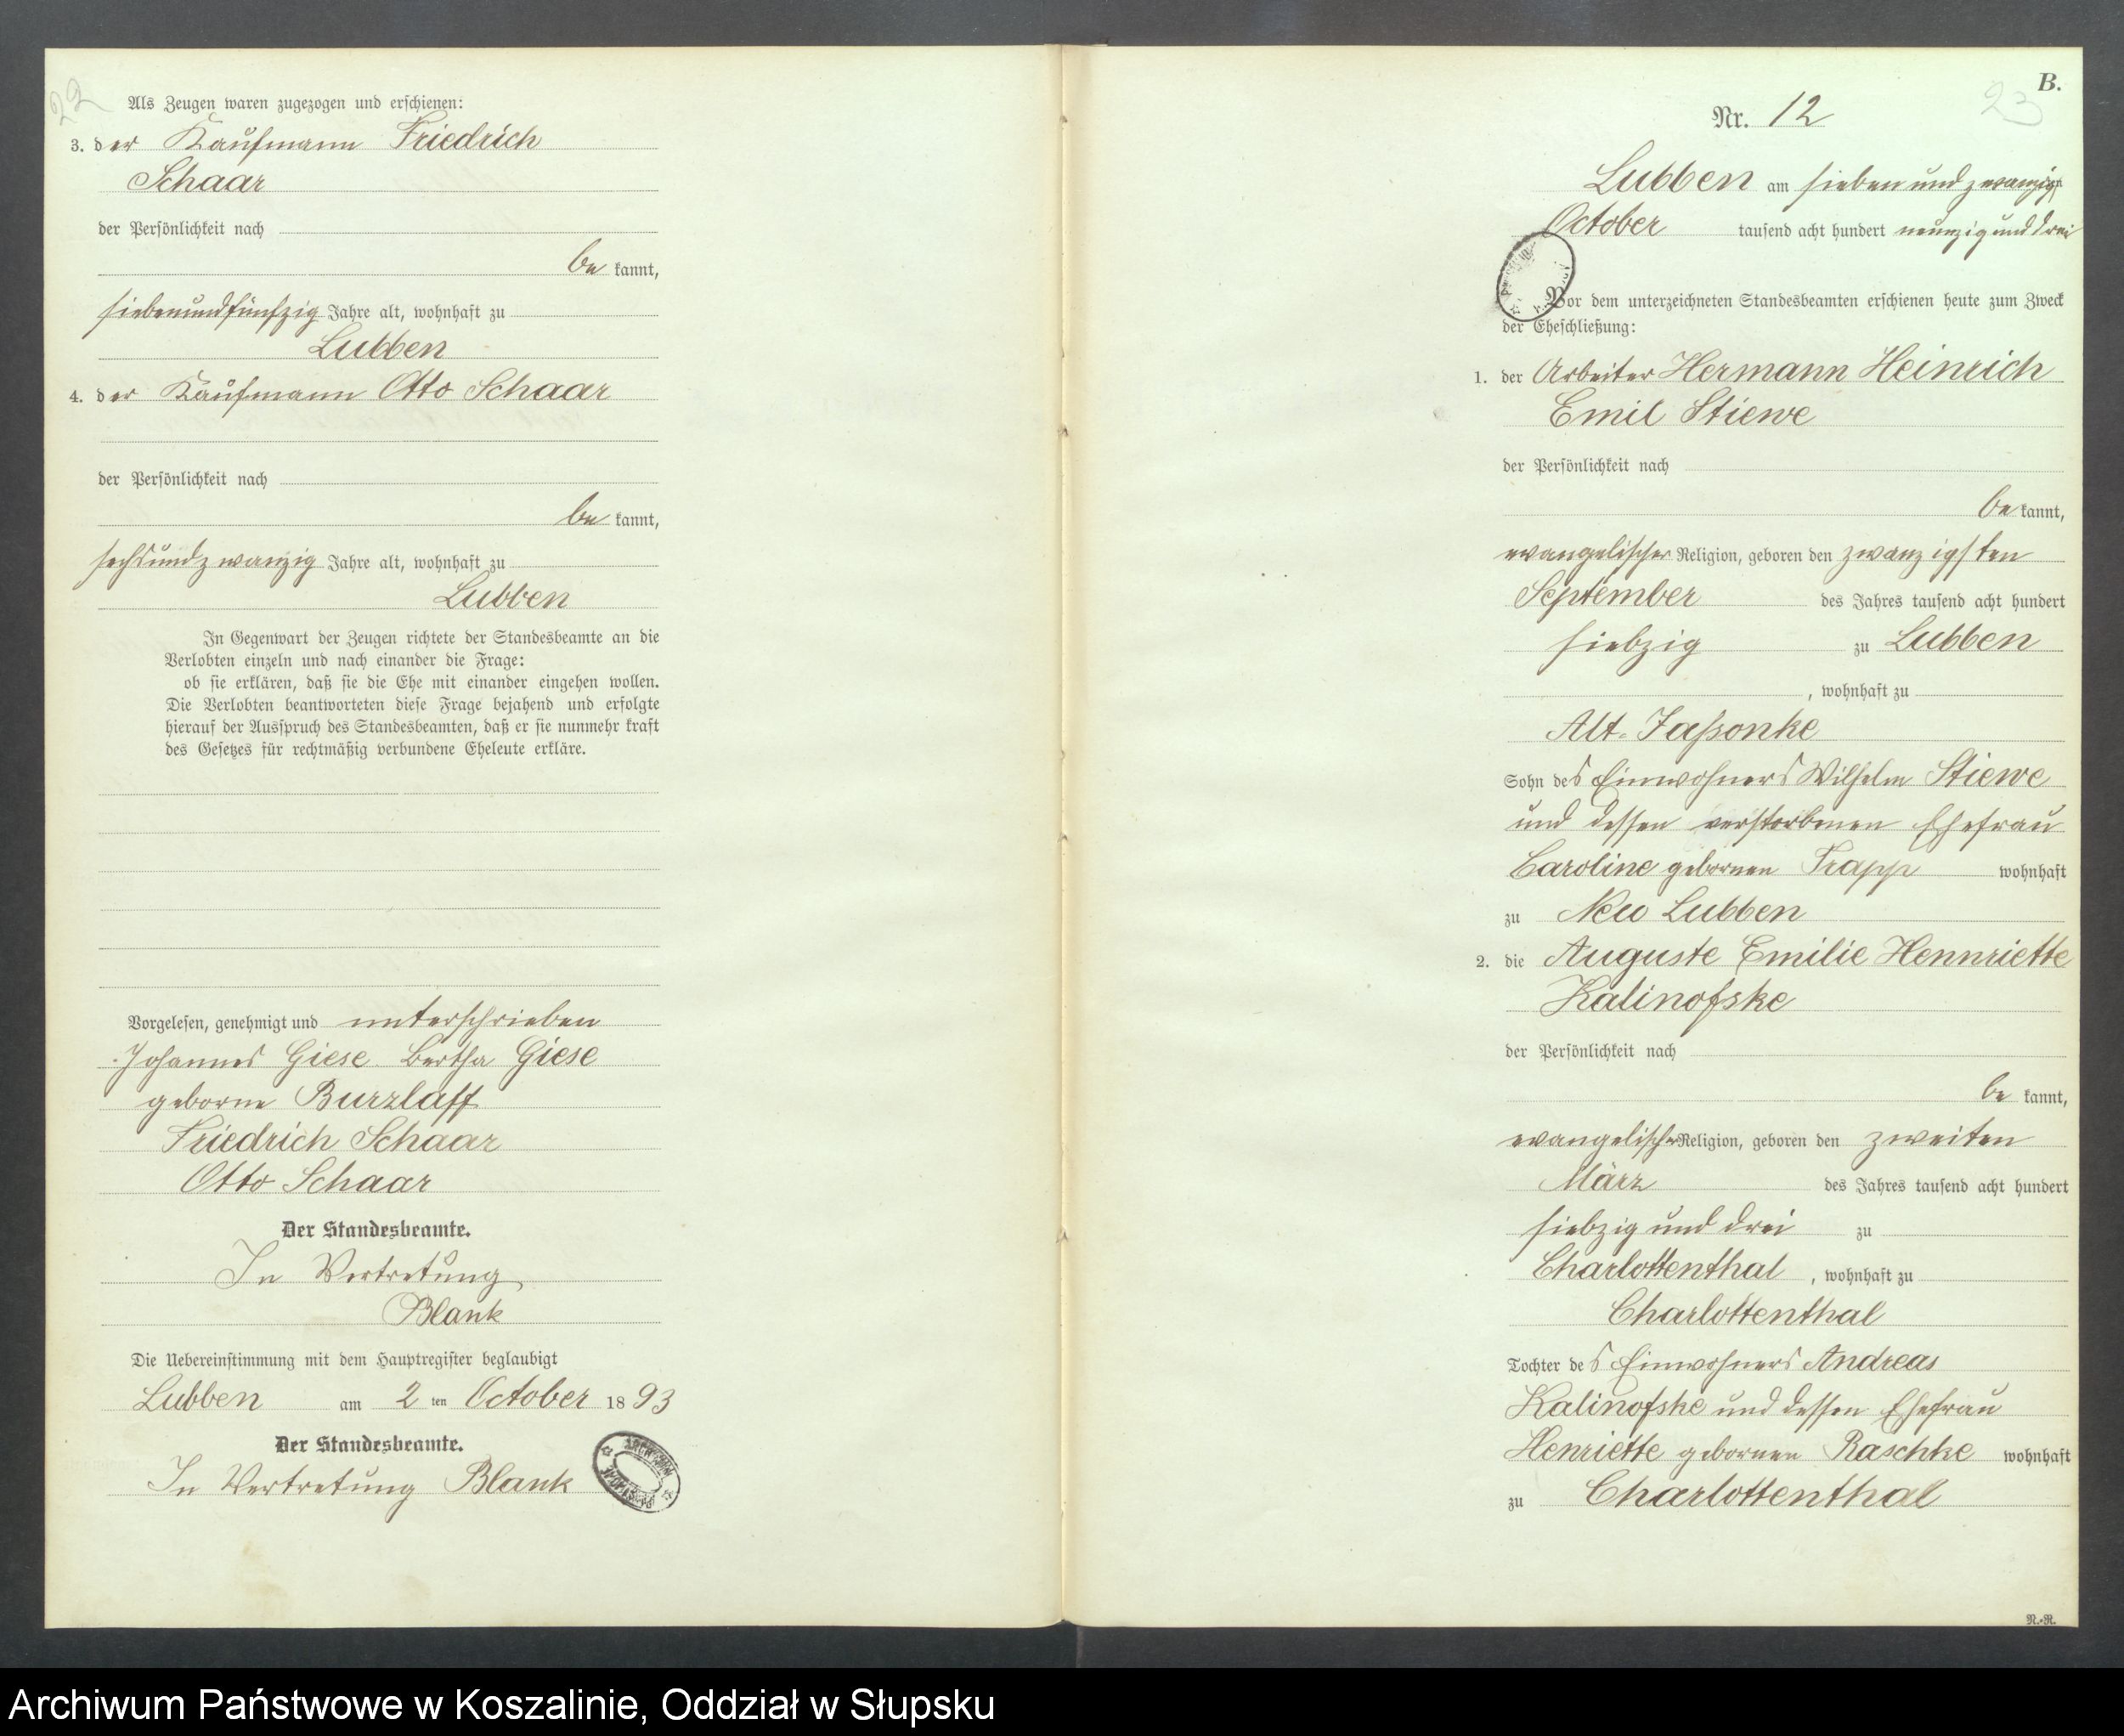 22
Als Zeugen waren zugezogen und erschienen:
3. der Kaufmann Friedrich
Schaar
der Persönlichkeit nach
be kannt,
siebenundfünfzig Jahre alt, wohnhaft zu
Lubben
4. der Kaufmann Otto Schaar
der Persönlichkeit nach
be kannt,
sechsundzwanzig Jahre alt, wohnhaft zu
Lubben
In Gegenwart der Zeugen richtete der Standesbeamte an die
Verlobten einzeln und nach einander die Frage:
ob sie erklären, daß sie die Ehe mit einander eingehen wollen.
Die Verlobten beantworteten diese Frage bejahend und erfolgte
hierauf der Ausspruch des Standesbeamten, daß er sie nunmehr kraft
des Gesetzes für rechtmäßig verbundene Eheleute erkläre.
Vorgelesen, genehmigt und unterschrieben
Johannes Giese Bertha Giese
geborne Burzlaff
Friedrich Schaar
Otto Schaar
Der Standesbeamte.
In Vertretung
Blank
Die Uebereinstimmung mit dem Hauptregister beglaubigt
Lubben am 2 ten October 1893
Der Standesbeamte.
In Vertretung Blank
B.
23
Nr. 12
Lubben am siebenundzwanzig
October tausend acht hundert neunzig und drei
Vor dem unterzeichneten Standesbeamten erschienen heute zum Zweck
der Eheschließung:
1. der Arbeiter Hermann Heinrich
Emil Stiewe
der Persönlichkeit nach
be kannt,
evangelischer Religion, geboren den zwanzigsten
September des Jahres tausend acht hundert
siebzig zu Lubben
, wohnhaft zu
Alt-Jaßonke
Sohn des Einwohners Wilhelm Stiewe
und dessen verstorbenen Ehefrau
Caroline gebornen Trapp wohnhaft
zu Neu Lubben
2. die Auguste Emilie Hennriette
Kalinofske
der Persönlichkeit nach
be kannt,
evangelischer Religion, geboren den zweiten
März des Jahres tausend acht hundert
siebzig und drei zu
Charlottenthal , wohnhaft zu
Charlottenthal
Tochter des Einwohners Andreas
Kalinofske und dessen Ehefrau
Henriette gebornen Raschke wohnhaft
zu Charlottenthal
N.-R.
Archiwum Państwowe w Koszalinie, Oddział w Słupsku